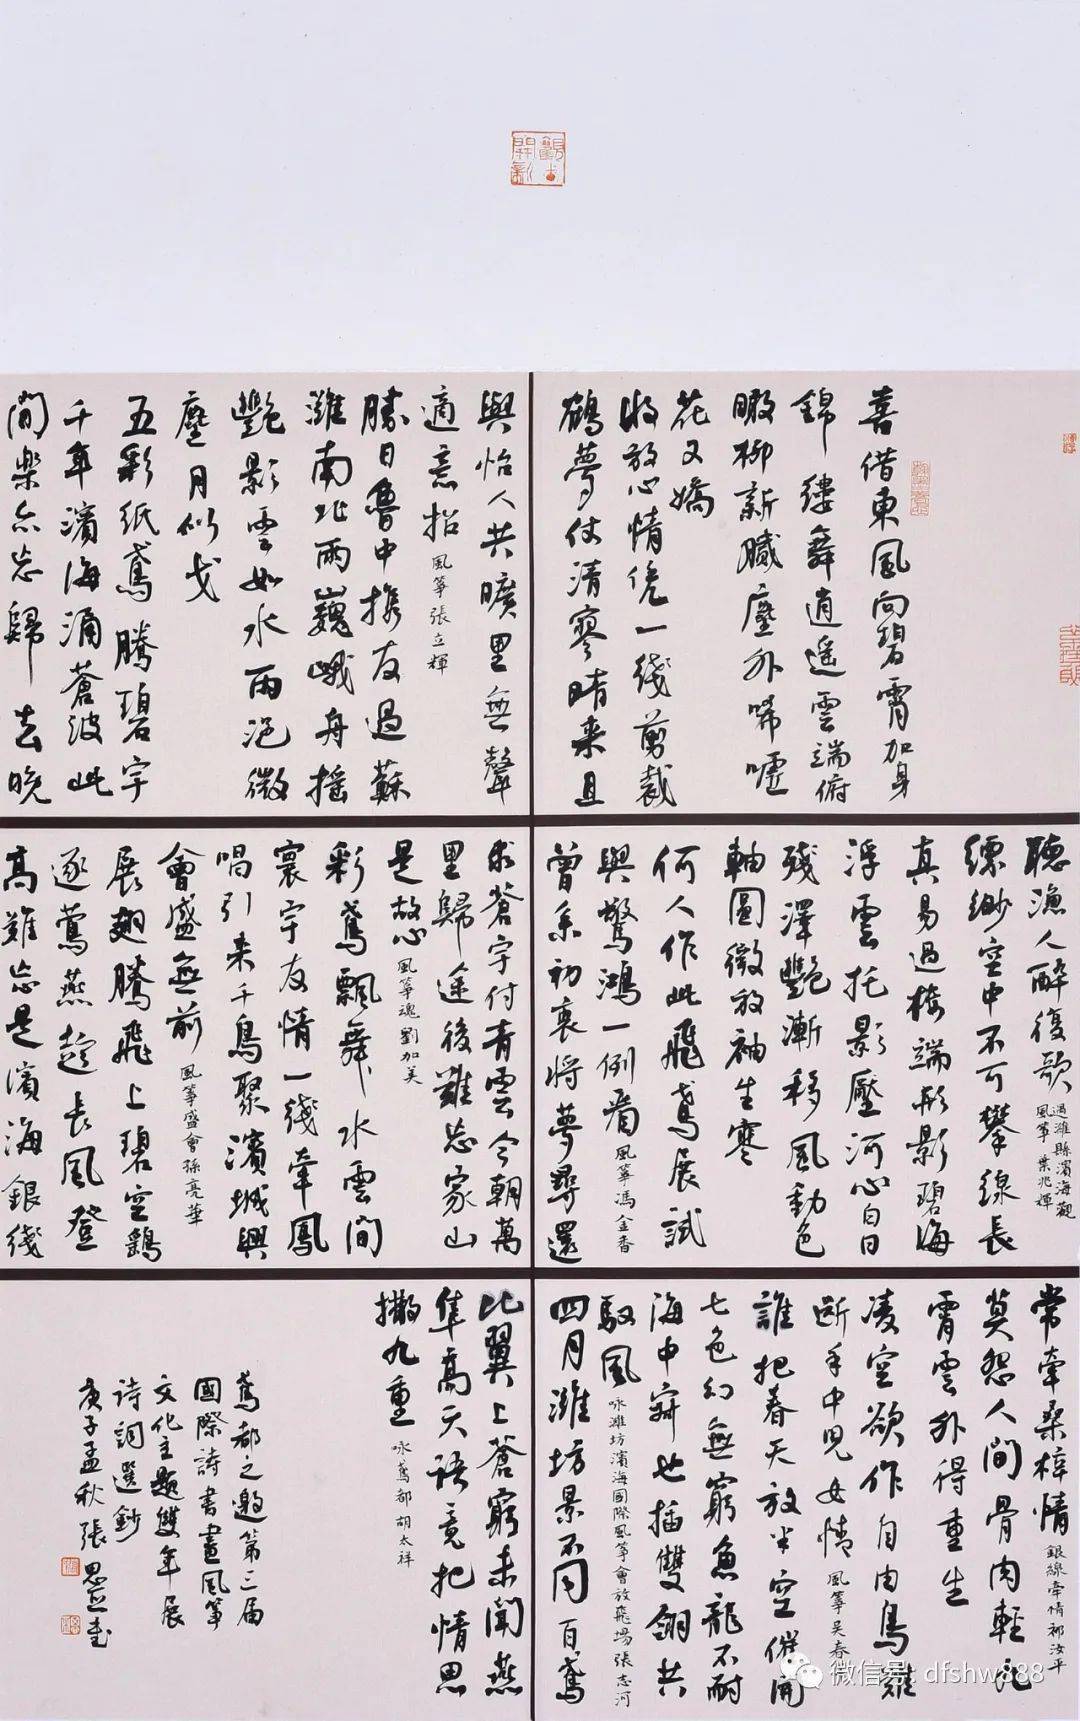 善借東風向碧霄加身
錦縷舞逍遥雲端俯
瞰柳新塵外唏噓
花又嬌
收放心情凭一綫剪裁
鶴夢仗清寥晴来且
與怡人共曠里無聲
適意招 風箏張立輝
勝日魯中携友過蘇
濰南北兩巍峨舟摇
艷影雲如水雨浥微
塵月似戈
五彩紙鳶騰碧宇
千年濱海涌蒼波此
間樂亦忘歸去晚
聽漁人醉復歌 過濰縣濱海觀風箏 葉兆輝
縹緲空中不可攀線長
真易過梅端形影碧海
浮雲托影壓河心白日
殘澤艷漸移風動色
軸圖微放袖生寒
何人作此飛鳶展試
與驚鴻一例看 風箏馮金香
曾系初衷將夢尋還
求蒼宇付青雲今朝萬
里歸途後難忘家山
是故心 風箏魂劉加美
彩鳶飄舞水雲間
寰宇友情一綫牽鳳
唱引来千鳥聚濱城興
會盛無前 風箏盛會孫亮華
展翅騰飛上碧空鷂
逐鶯燕趁長風登
高難忘是濱海銀綫
常牽桑梓情 銀線牽情祁汝平
莫怨人間骨肉輕凡
霄雲外得重生
凌空欲作自由鳥難
斷手中兒女情 風箏吴春
誰把春天放半空催開
七色幻無窮魚龍不耐
海中寂也插雙翅共
馭風 咏濰坊濱海國際風箏會放飛場張志河
四月濰坊景不同百鳶
比翼上蒼窮未聞燕
隼高天語竟把情思
撒九重 咏鳶都胡太祥
鳶都之邀第三届
國際詩書畫風箏
文化主題雙年展
詩詞選鈔
庚子孟秋張
微信号: dfshw888